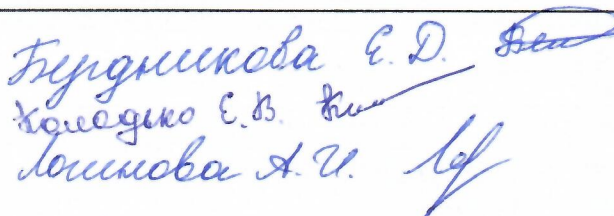 Бердникова Е. Д.
Колодько Е. В.
Логинова А. И.